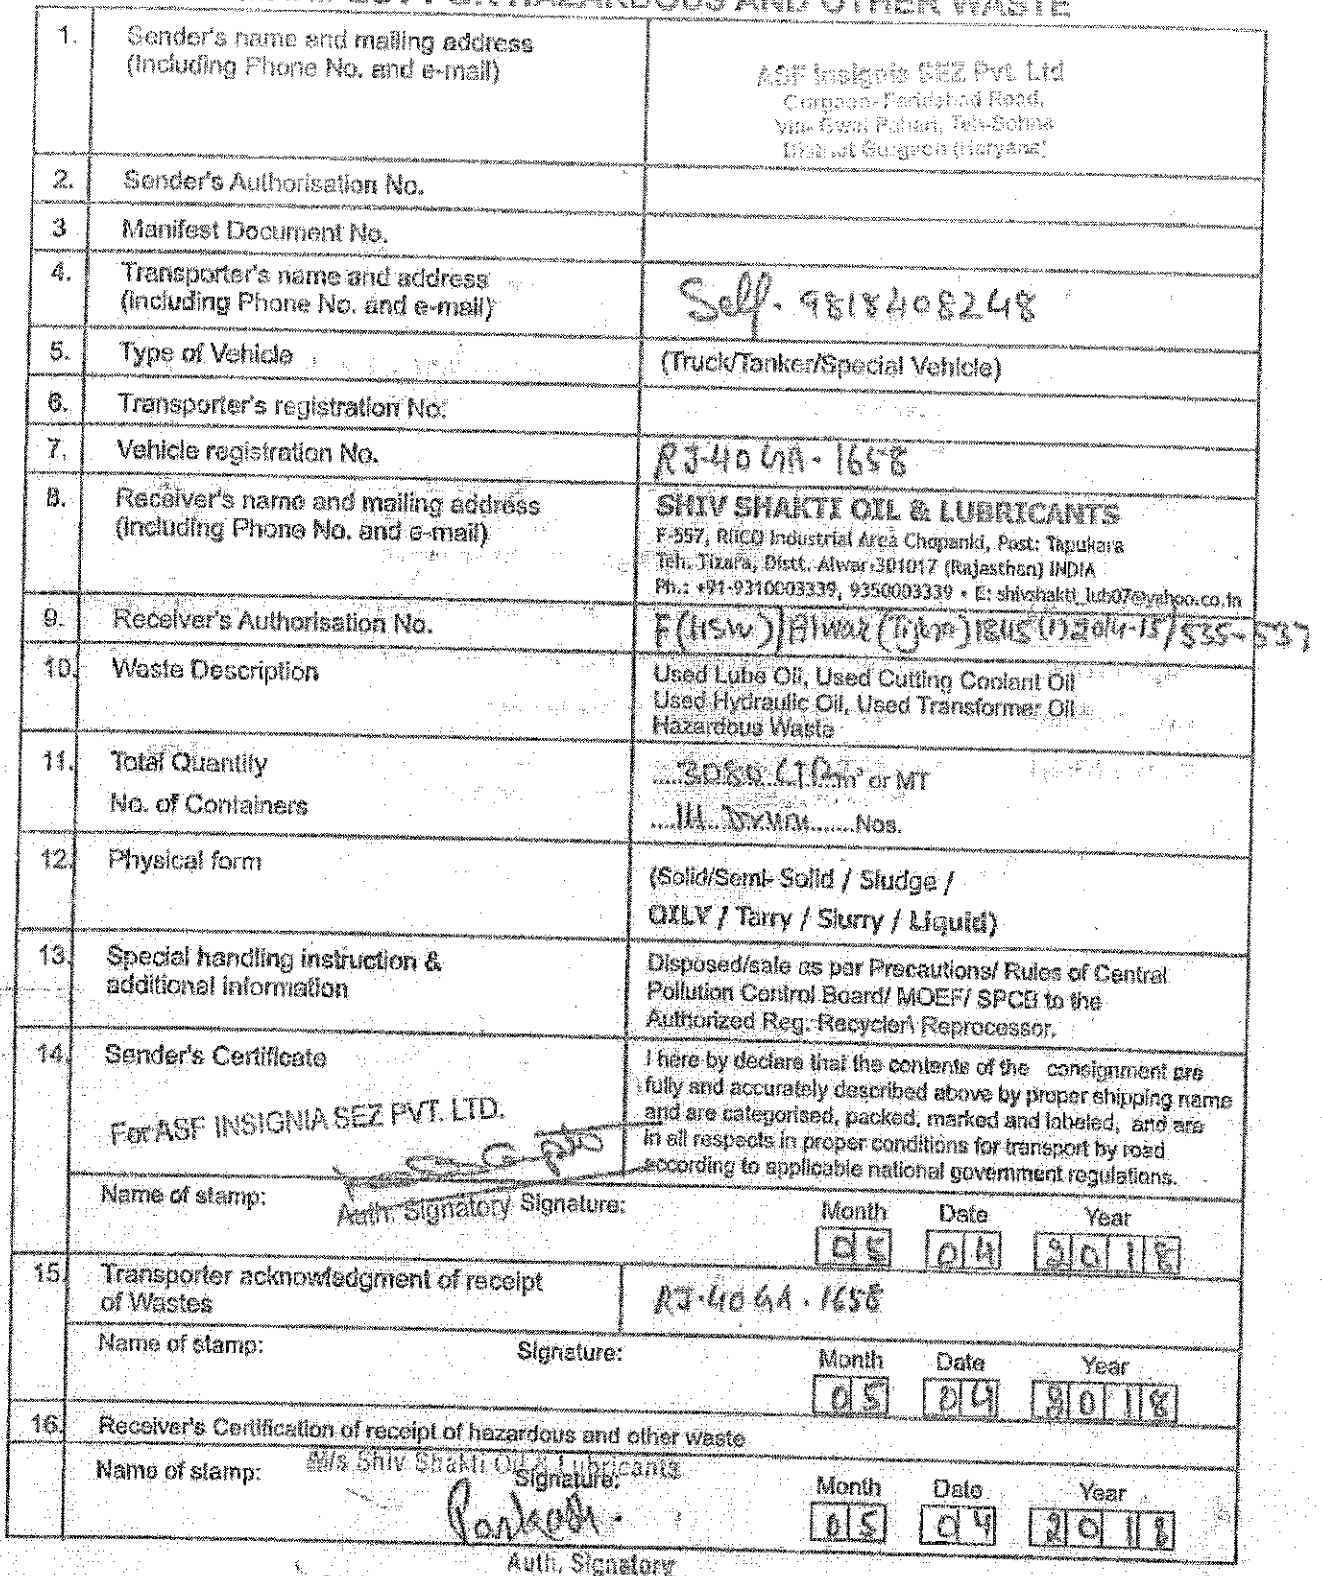 FOR HAZARDOUS AND OTHER WASTE
1. Sender's name and mailing address
(Including Phone No. and e-mail)
ASF Insignia SEZ Pvt. Ltd
Gurgaon- Faridabad Road,
Via- Gwal Pahari, Teh-Sohna
District Gurgaon (Haryana)
2. Sender's Authorisation No.
3 Manifest Document No.
4. Transporter's name and address
(including Phone No. and e-mail)
Self. 9818408248
5. Type of Vehicle (Truck/Tanker/Special Vehicle)
6. Transporter's registration No.
7. Vehicle registration No. RJ-40 GA - 1658
8. Receiver's name and mailing address
(including Phone No. and e-mail)
SHIV SHAKTI OIL & LUBRICANTS
F-557, RIICO Industrial Area Chopanki, Post: Tapukara
Teh. Tizara, Distt. Alwar-301017 (Rajasthan) INDIA
Ph.: +91-9310003339, 9350003339 • E: shivshakti_lub07@yahoo.co.in
9. Receiver's Authorisation No. F(HSW)/Alwar (Tijara) (1) 2014-15/535-537
10. Waste Description
Used Lube Oil, Used Cutting Coolant Oil
Used Hydraulic Oil, Used Transformer Oil
Hazardous Waste
11. Total Quantity 3080 LTR m³ or MT
No. of Containers ....14 Drum.......Nos.
12. Physical form
(Solid/Semi- Solid / Sludge /
OILY / Tarry / Slurry / Liquid)
13. Special handling instruction &
additional information
Disposed/sale as par Precautions/ Rules of Central
Pollution Control Board/ MOEF/ SPCB to the
Authorized Reg. Recycler\ Reprocessor.
14. Sender's Certificate
I here by declare that the contents of the consignment are
fully and accurately described above by proper shipping name
and are categorised, packed, marked and labeled, and are
in all respects in proper conditions for transport by road
according to applicable national government regulations.
For ASF INSIGNIA SEZ PVT. LTD.
Name of stamp: Auth. Signatory Signature: Month Date Year
05 04 2018
15. Transporter acknowledgment of receipt
of Wastes
RJ-40 GA . 1658
Name of stamp: Signature: Month Date Year
05 04 2018
16. Receiver's Certification of receipt of hazardous and other waste
M/s Shiv Shakti Oil & Lubricants
Name of stamp: Signature: Month Date Year
Parkash. 05 04 2018
Auth. Signatory